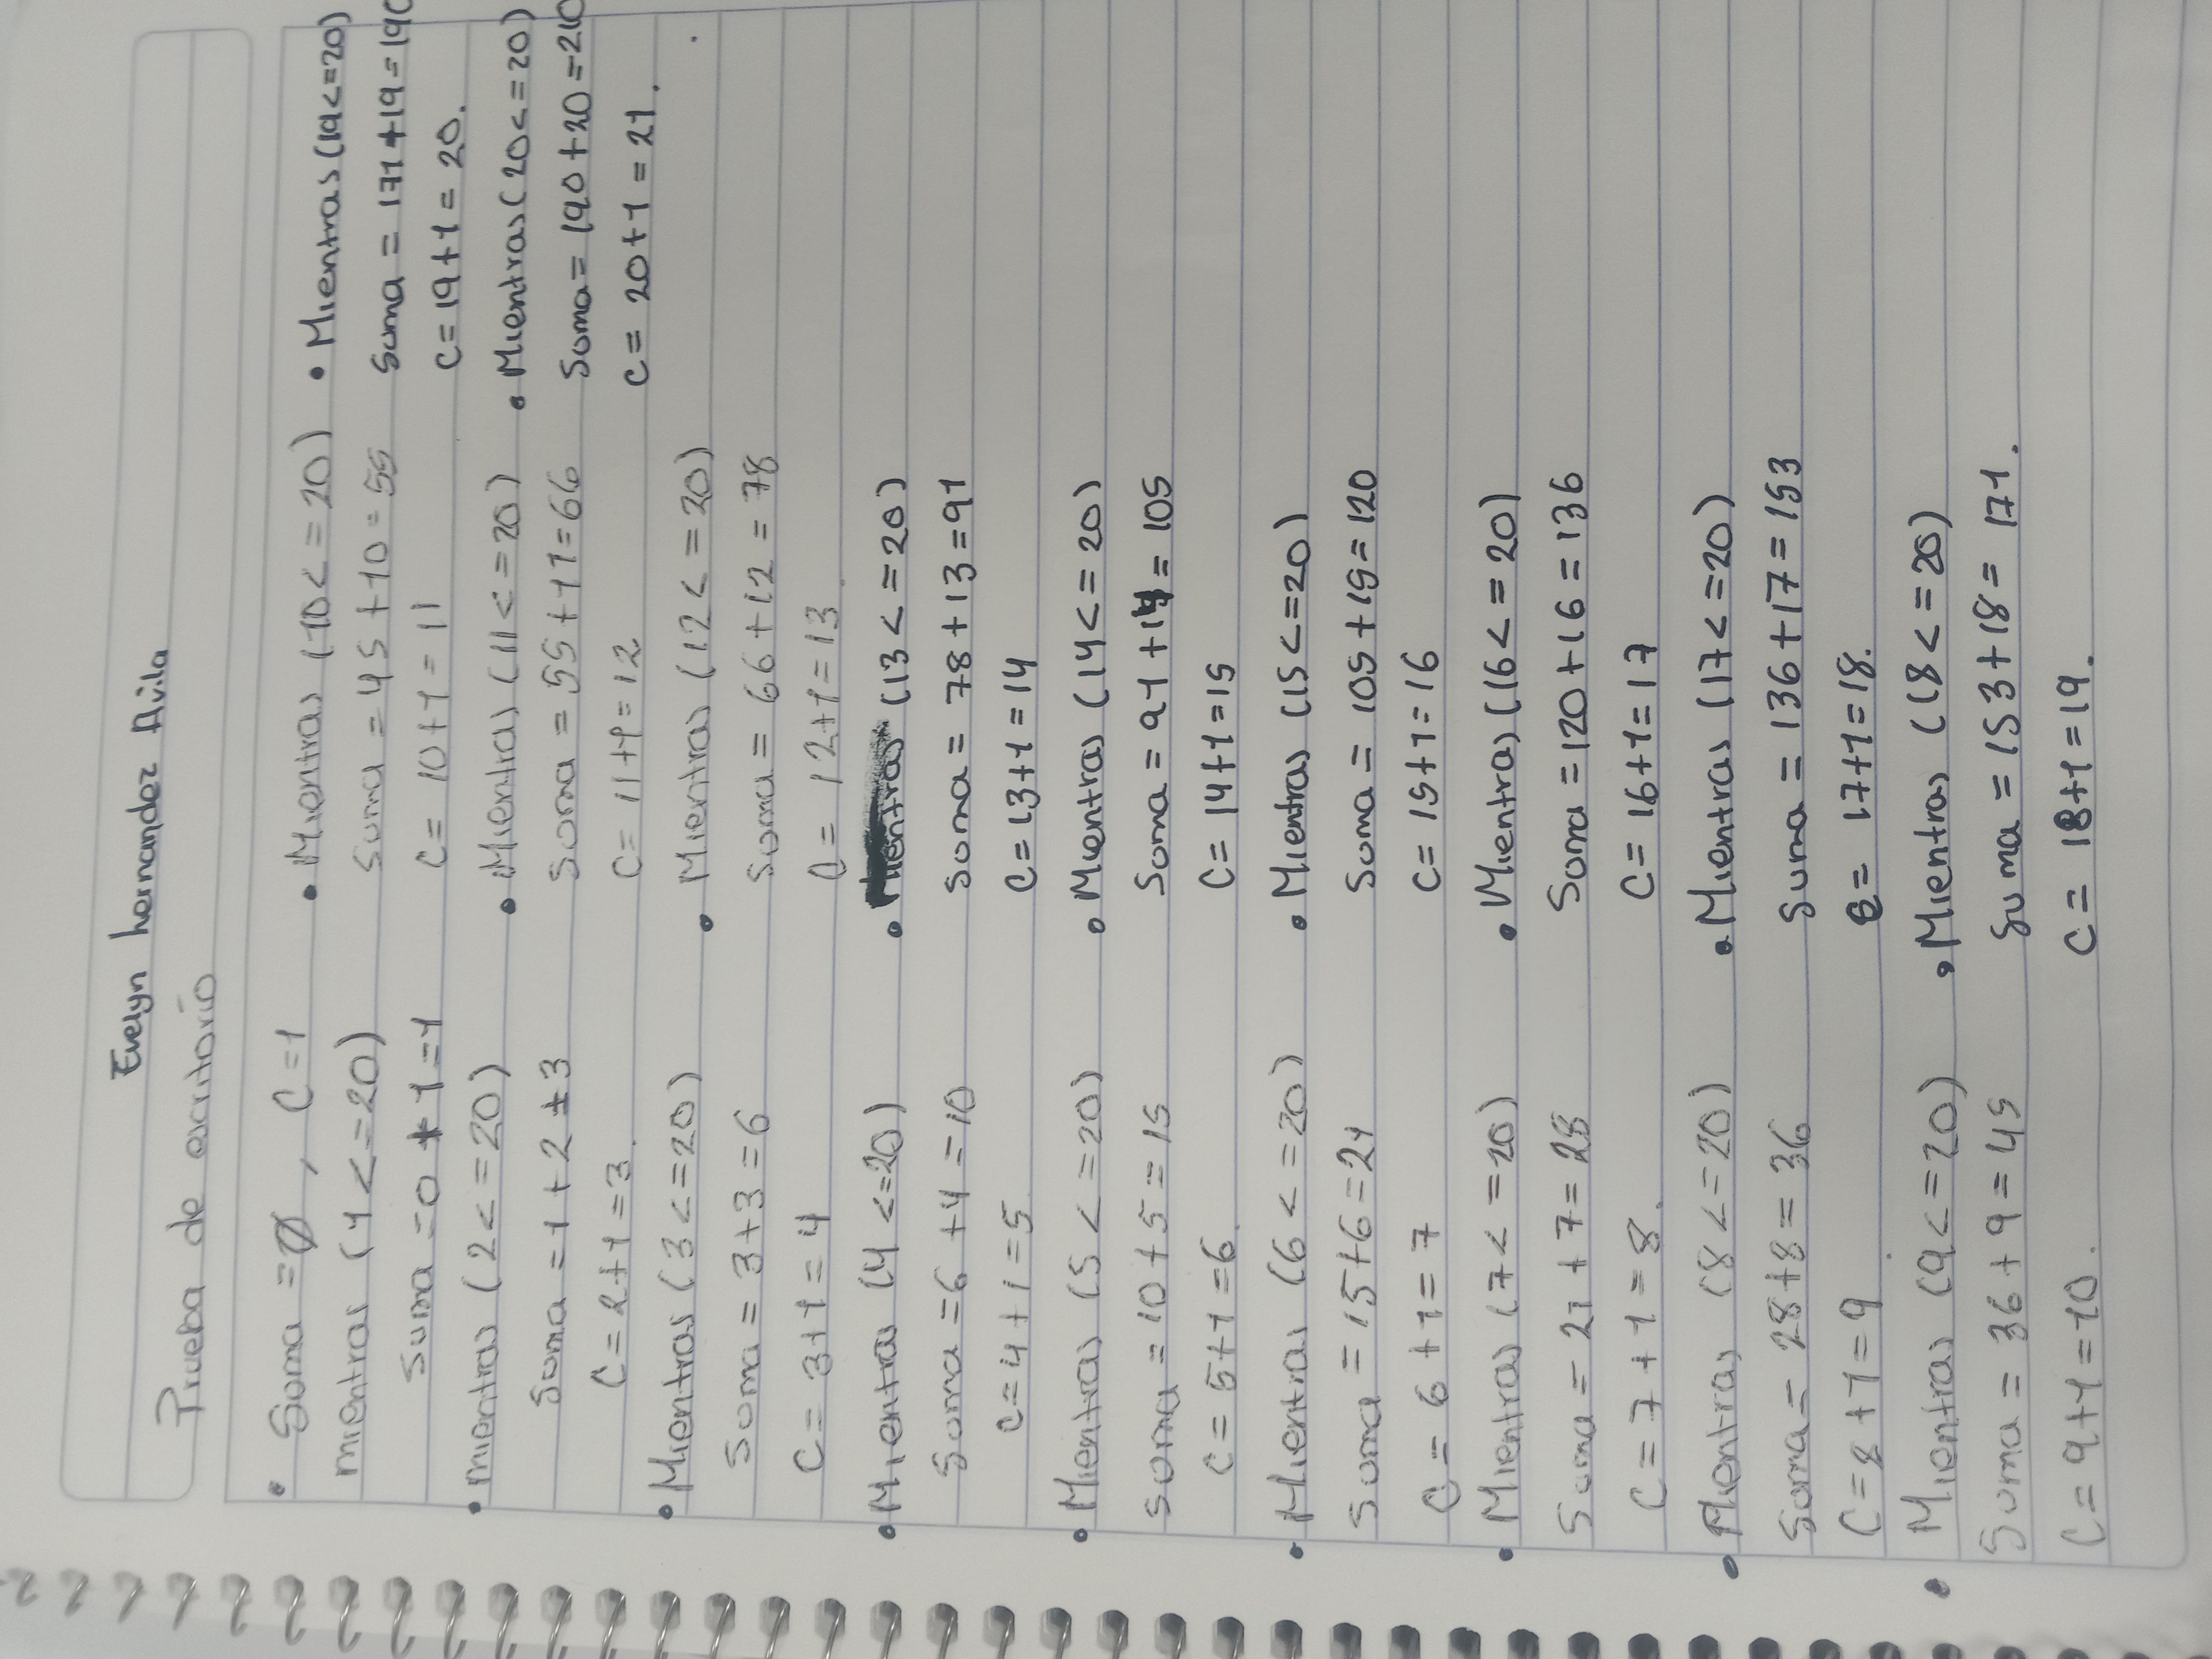 Evelyn hernandez Avila
Prueba de escritorio
• Suma = 0 , C = 1
mientras (1 <= 20)
Suma = 0 + 1 = 1
• mientras (2 <= 20)
Suma = 1 + 2 = 3
C = 2 + 1 = 3.
• Mientras (3 <= 20)
Suma = 3 + 3 = 6
C = 3 + 1 = 4
• Mientras (4 <= 20)
Suma = 6 + 4 = 10
C = 4 + 1 = 5
• Mientras (5 <= 20)
Suma = 10 + 5 = 15
C = 5 + 1 = 6.
• Mientras (6 <= 20)
Suma = 15 + 6 = 21
C = 6 + 1 = 7
• Mientras (7 <= 20)
Suma = 21 + 7 = 28
C = 7 + 1 = 8.
• Mientras (8 <= 20)
Suma = 28 + 8 = 36
C = 8 + 1 = 9.
• Mientras (9 <= 20)
Suma = 36 + 9 = 45
C = 9 + 1 = 10.
• Mientras (10 <= 20)
Suma = 45 + 10 = 55
C = 10 + 1 = 11
• Mientras (11 <= 20)
Suma = 55 + 11 = 66
C = 11 + 1 = 12
• Mientras (12 <= 20)
Suma = 66 + 12 = 78
C = 12 + 1 = 13
• Mientras (13 <= 20)
Suma = 78 + 13 = 91
C = 13 + 1 = 14
• Mientras (14 <= 20)
Suma = 91 + 14 = 105
C = 14 + 1 = 15
• Mientras (15 <= 20)
Suma = 105 + 15 = 120
C = 15 + 1 = 16
• Mientras (16 <= 20)
Suma = 120 + 16 = 136
C = 16 + 1 = 17
• Mientras (17 <= 20)
Suma = 136 + 17 = 153
C = 17 + 1 = 18.
• Mientras (18 <= 20)
Suma = 153 + 18 = 171.
C = 18 + 1 = 19.
• Mientras (19 <= 20)
Suma = 171 + 19 = 190
C = 19 + 1 = 20.
• Mientras (20 <= 20)
Suma = 190 + 20 = 210
C = 20 + 1 = 21.